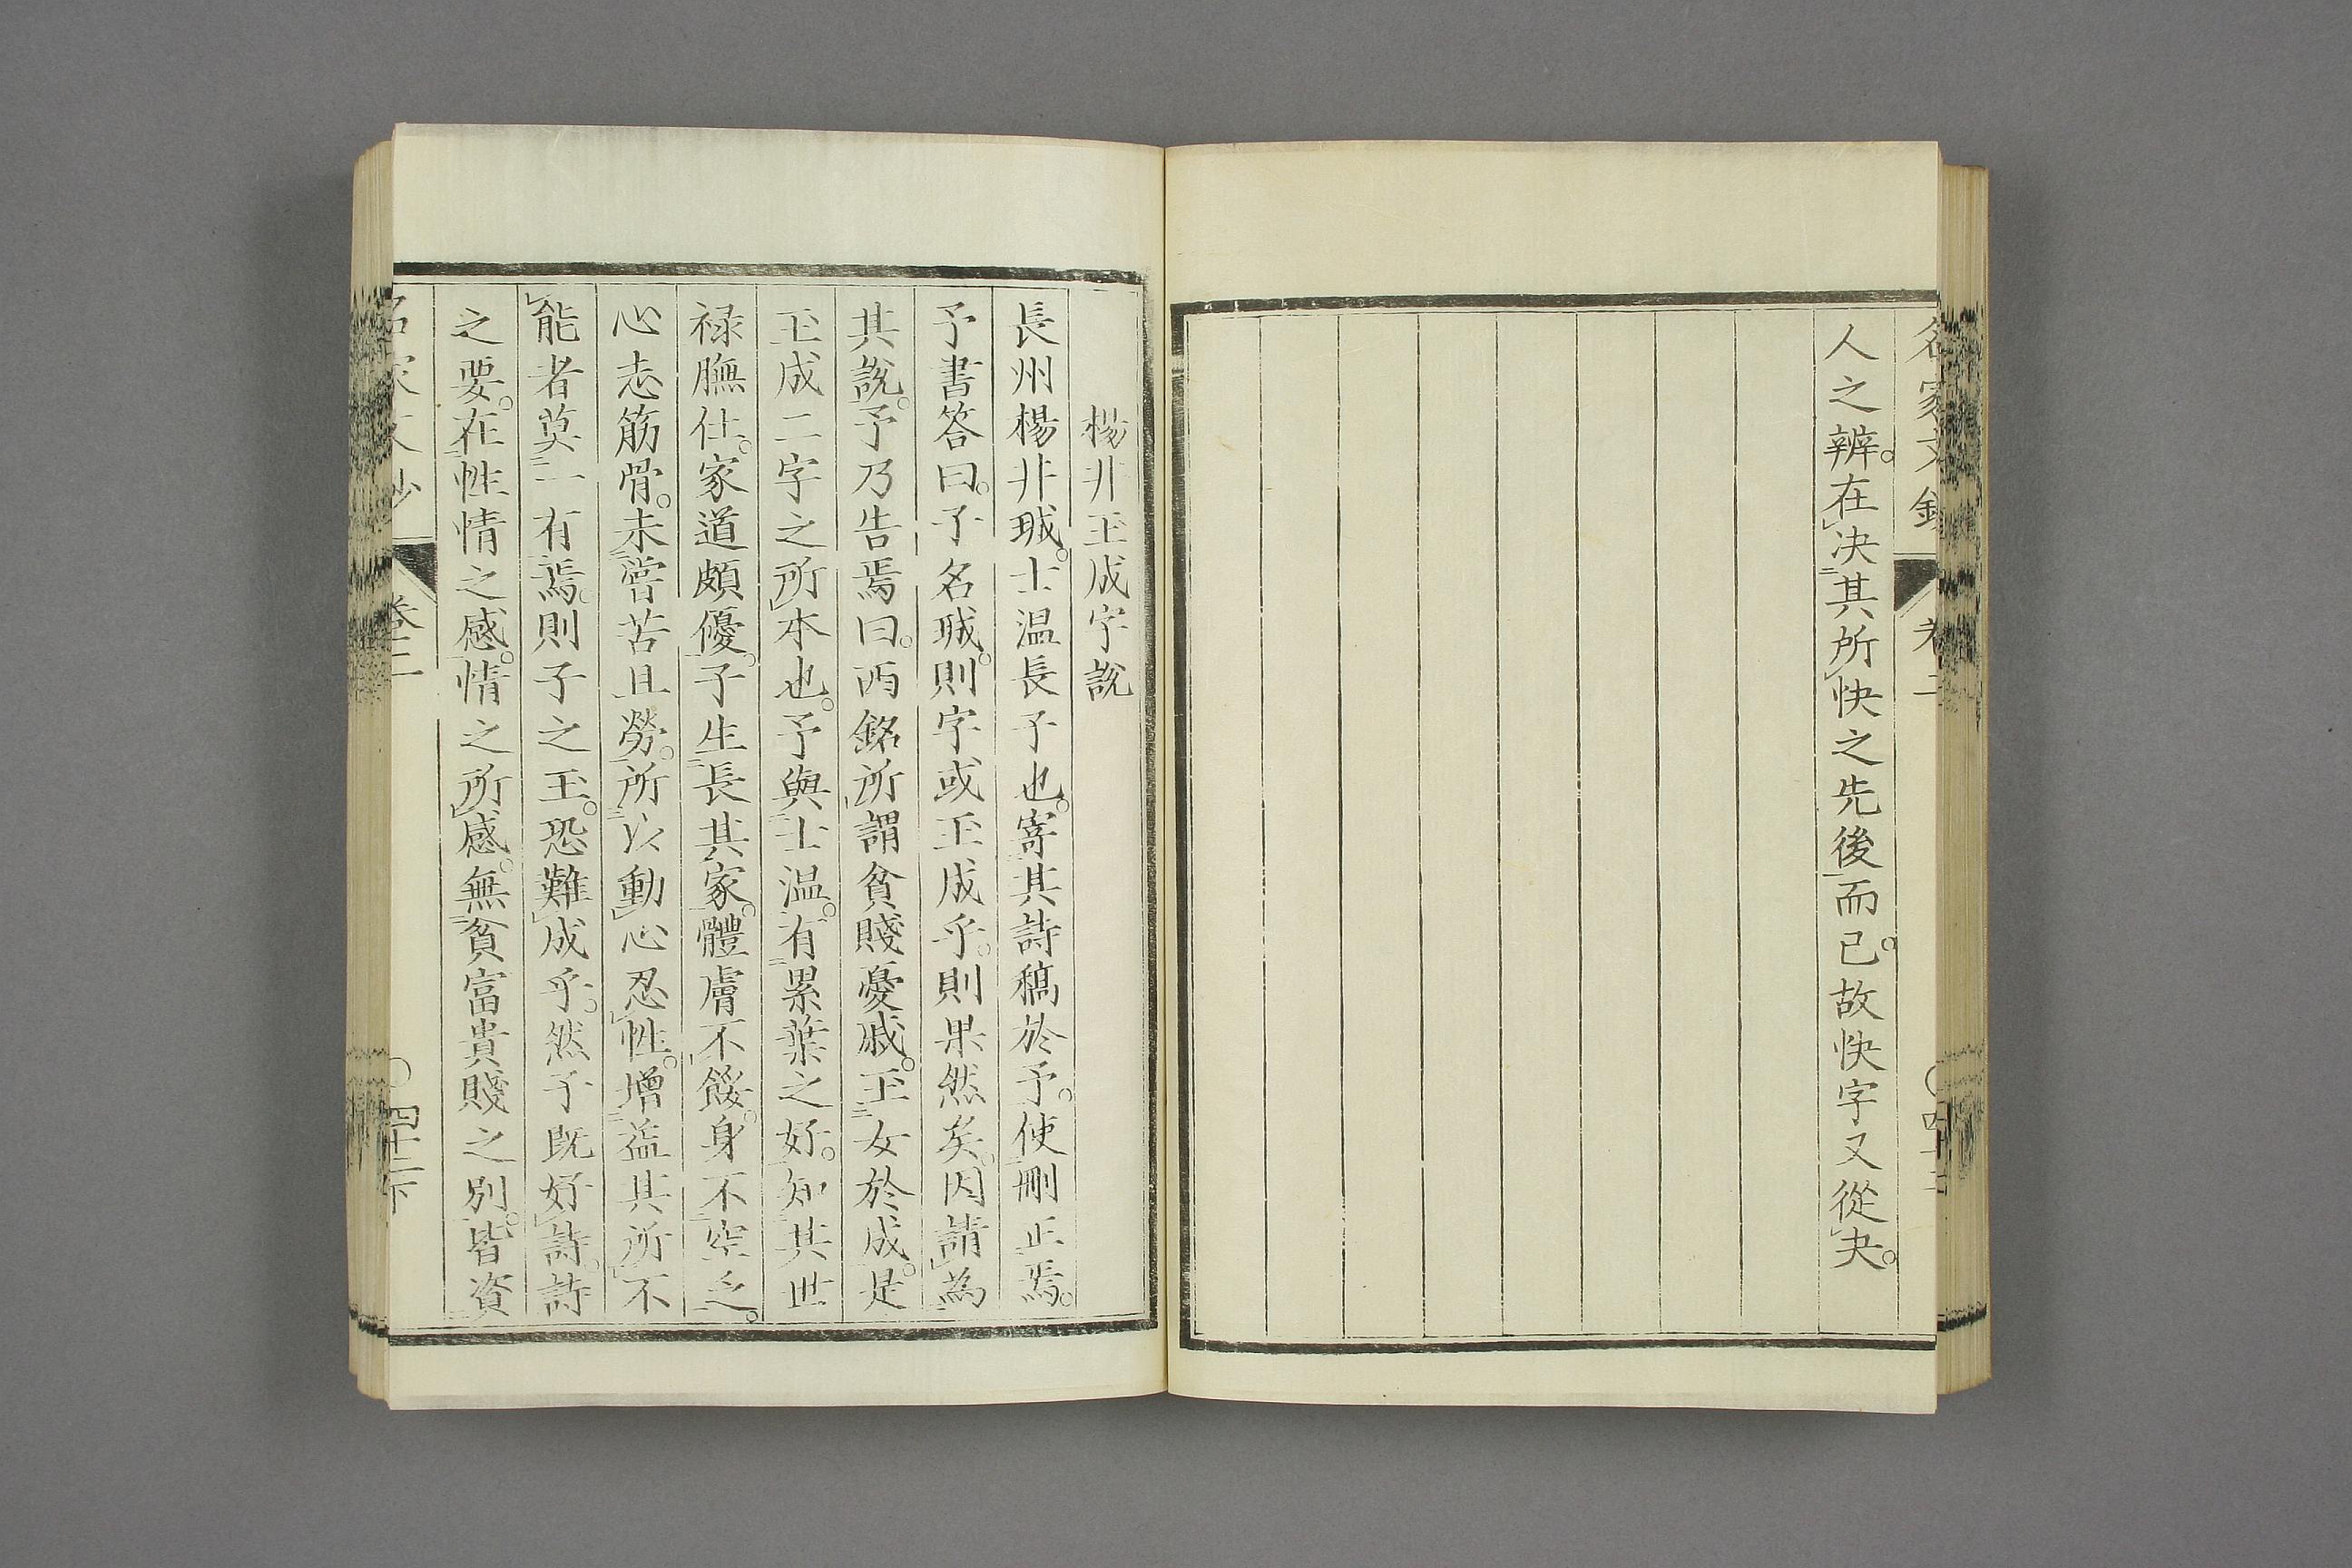 名家文鈔 卷二
人之辨。在決其所快之先後而已。故快字又從夬。
楊非玉成字說
長州楊非珹。士温長子也。寄其詩稿於予。使刪正焉。
予書答曰。子名珹。則字或玉成乎。則果然矣。因請為
其說。予乃告焉曰。西銘所謂貧賤憂戚。玉女於成。是
玉成二字之所本也。予與士温。有累葉之好。知其世
禄膴仕。家道頗優。子生長其家。體膚不餒。身不空乏。
心志筋骨。未嘗苦且勞。所以動心忍性。增益其所不
能者莫一有焉。則子之玉。恐難成乎。然子既好詩。詩
之要。在性情之感。情之所感。無貧富貴賤之別。皆資
名家文鈔 卷二 四十二下